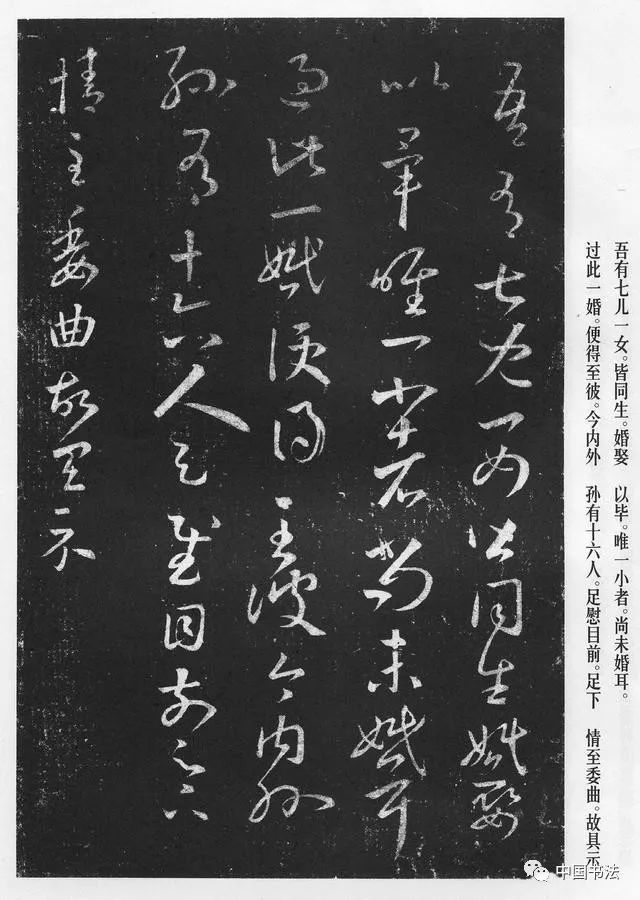 吾有七儿一女皆同生婚娶
以毕唯一小者尚未婚耳
过此一婚便得至彼今内外
孙有十六人足慰目前足下
情至委曲故具示
吾有七儿一女。皆同生。婚娶 以毕。唯一小者。尚未婚耳。
过此一婚。便得至彼。今内外 孙有十六人。足慰目前。足下 情至委曲。故具示
中国书法